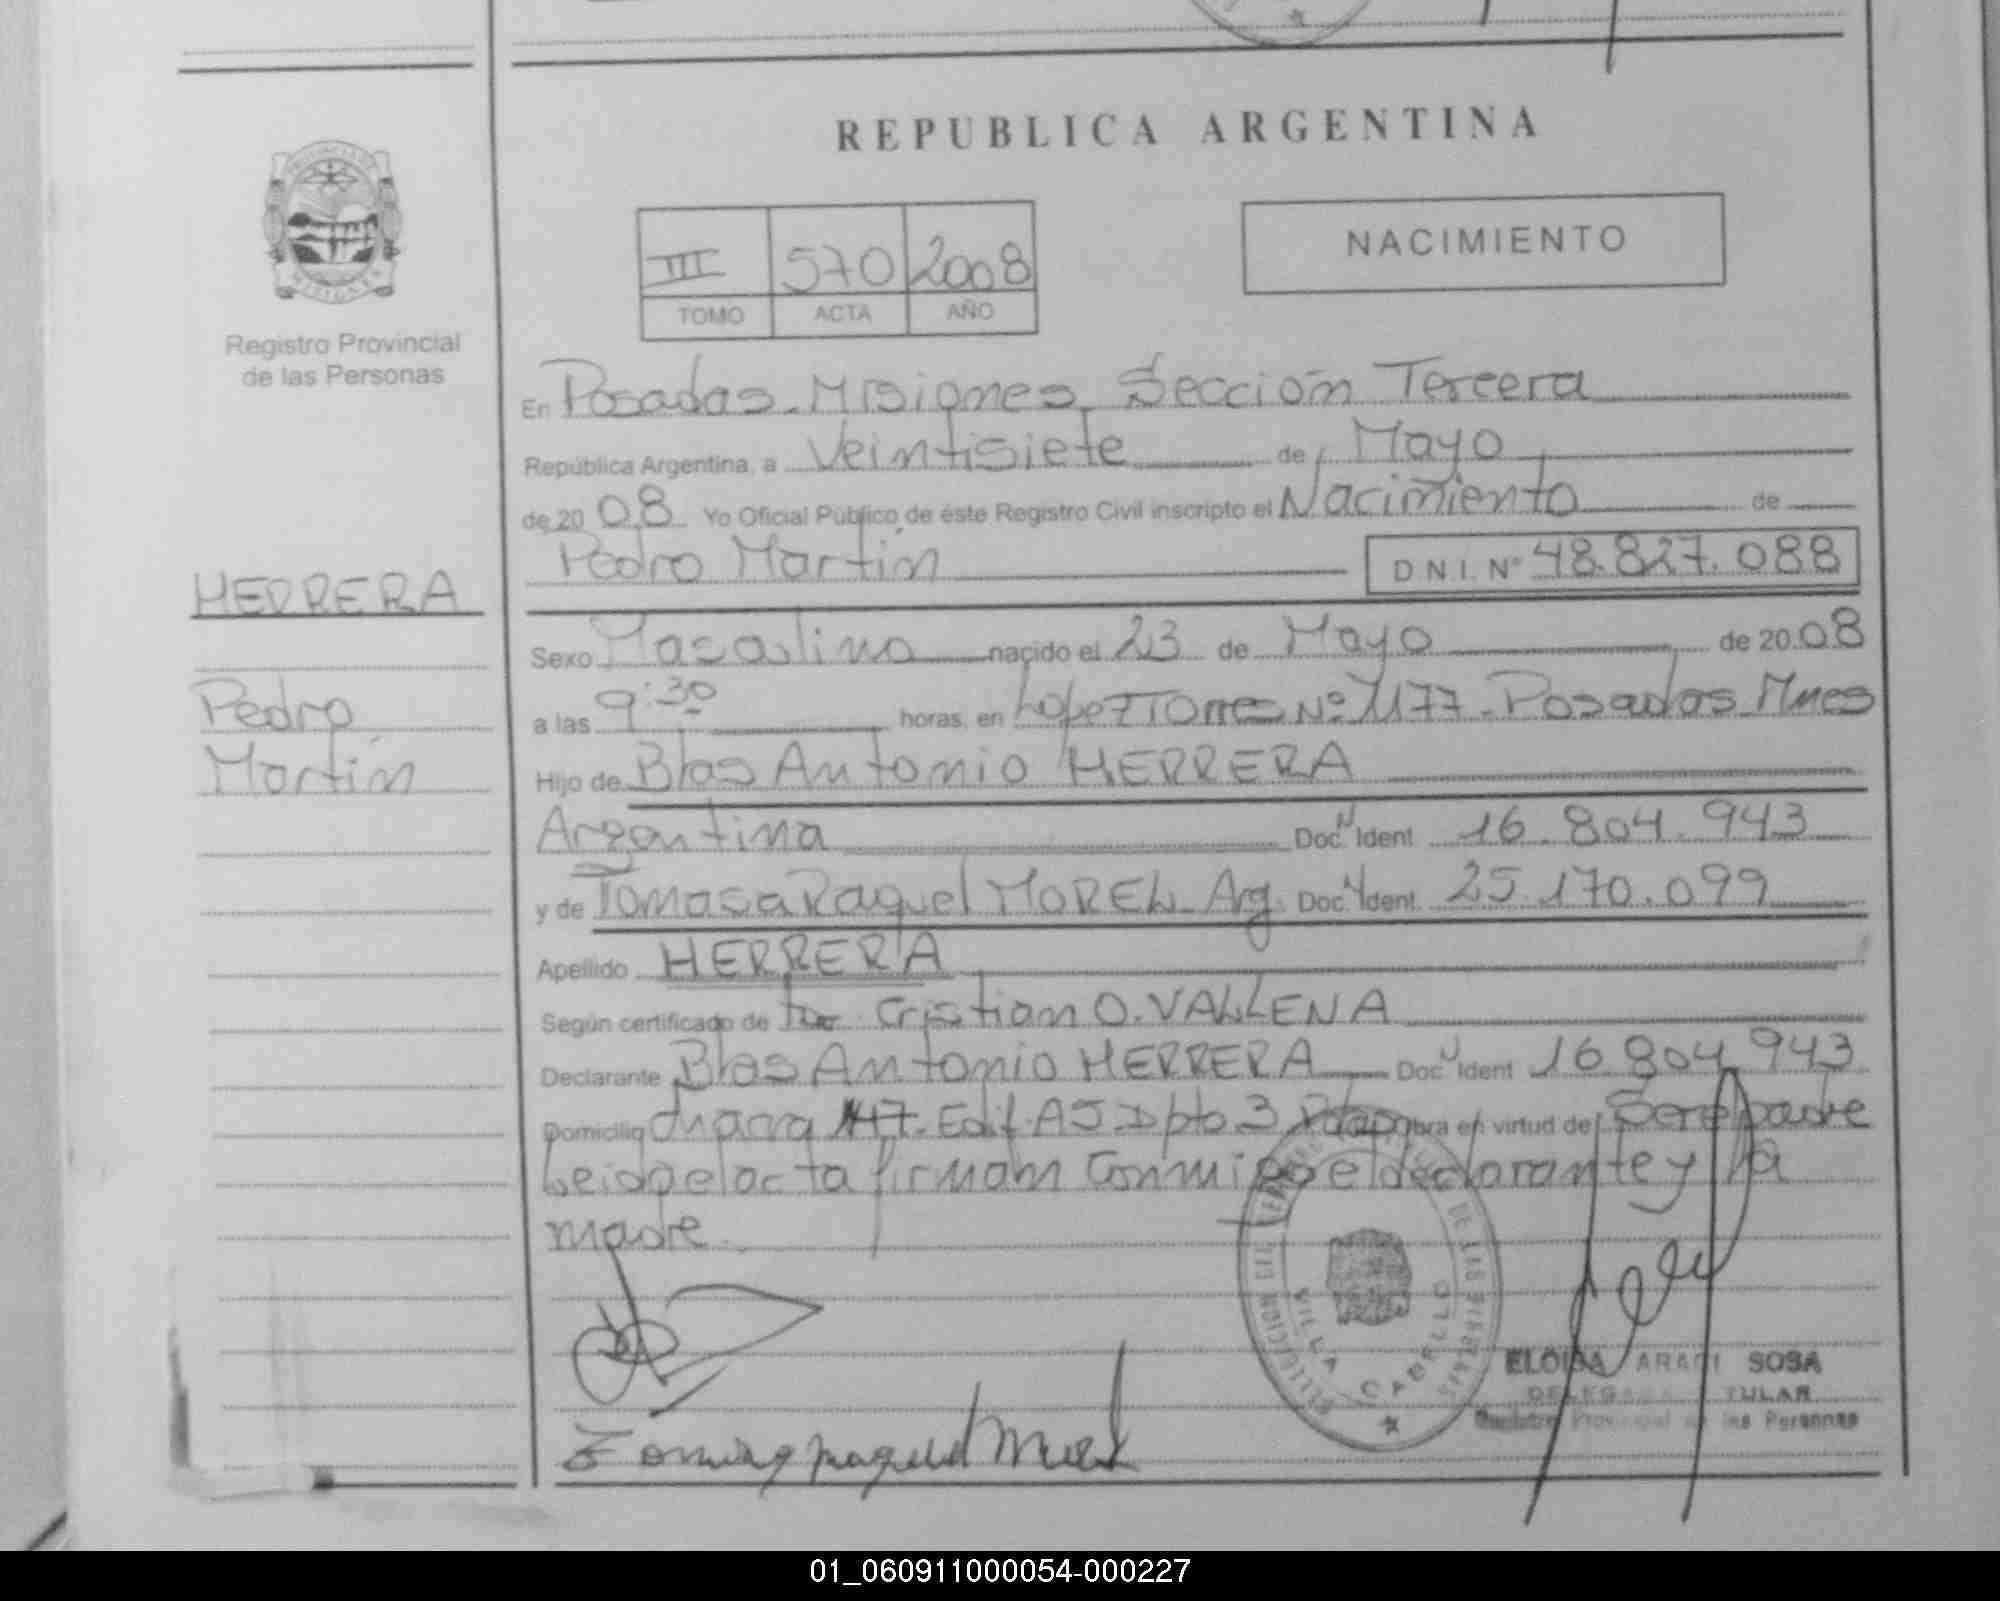 REPUBLICA ARGENTINA
III 570 2008
TOMO ACTA AÑO
NACIMIENTO
Registro Provincial
de las Personas
HERRERA
Pedro
Martín
En Posadas - Misiones, Sección Tercera
República Argentina, a Veintisiete de Mayo
de 20 08 Yo Oficial Público de éste Registro Civil inscripto el Nacimiento de
Pedro Martín D N I. Nº 48.827.088
Sexo Masculino nacido el 23 de Mayo de 20 08
a las 9:30 horas, en Lopez Torres Nº 1177 - Posadas Mnes
Hijo de Blas Antonio HERRERA
Argentina Doc. N Ident 16.804.943
y de Tomasa Raquel MOREL - Arg. Doc. N Ident. 25.170.099
Apellido HERRERA
Según certificado de Dr. Cristian O. VALLENA
Declarante Blas Antonio HERRERA Doc. N Ident 16.804.943
Domicilio chacra 147 - Edif. A5 Dpto 3 Pdas obra en virtud de Ser el padre
Leida el acta firman conmigo el declarante y la
madre.
VILLA CABELLO
ELOISA ARACI SOSA
DELEGADA TITULAR
Registro Provincial de las Personas
01_060911000054-000227